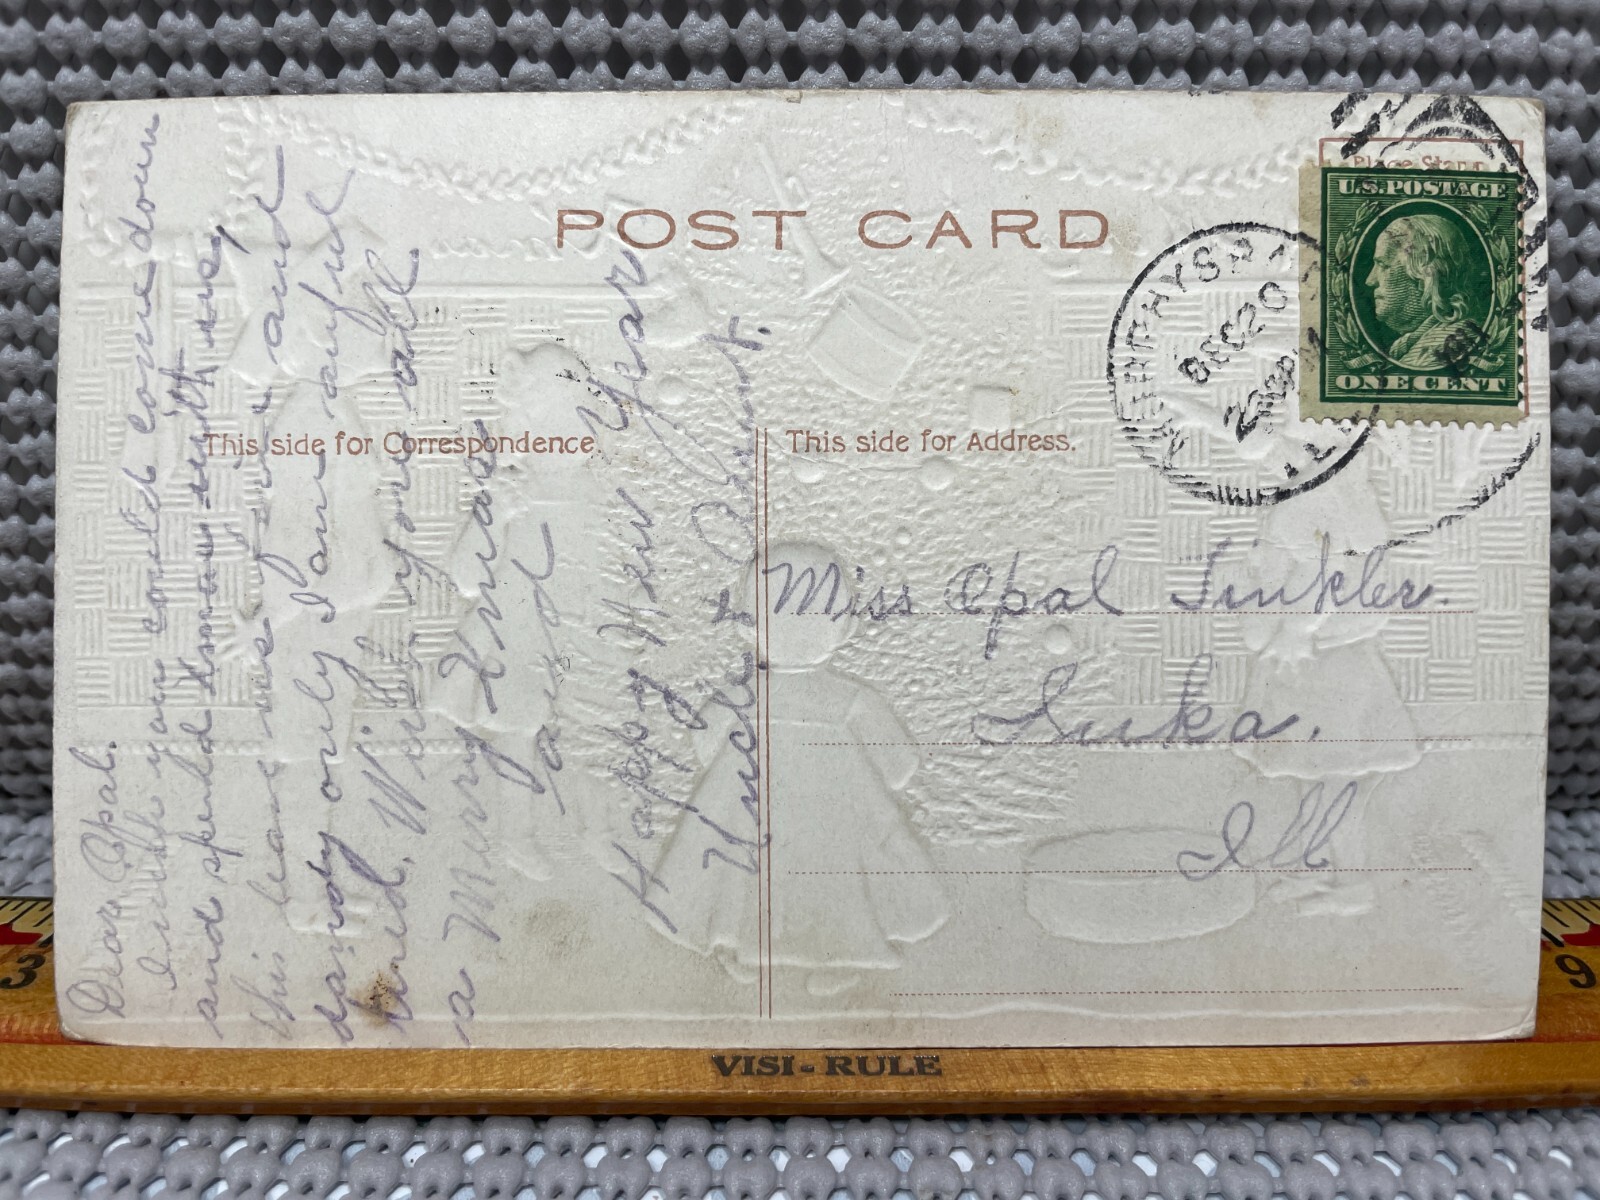 POST CARD
Place Stamp
U.S. POSTAGE
ONE CENT
MURPHYSBORO
DEC 20
ILL
This side for Correspondence.
This side for Address.
Dear Opal.
I wish you could come down
and spend Xmas with us,
this leaves us
dandy only I am awful
tired. Wish you all
a Merry Xmas
and
Happy New Year
Uncle & Aunt.
Miss Opal Tinkler.
Iuka.
Ill
3
9
VISI-RULE